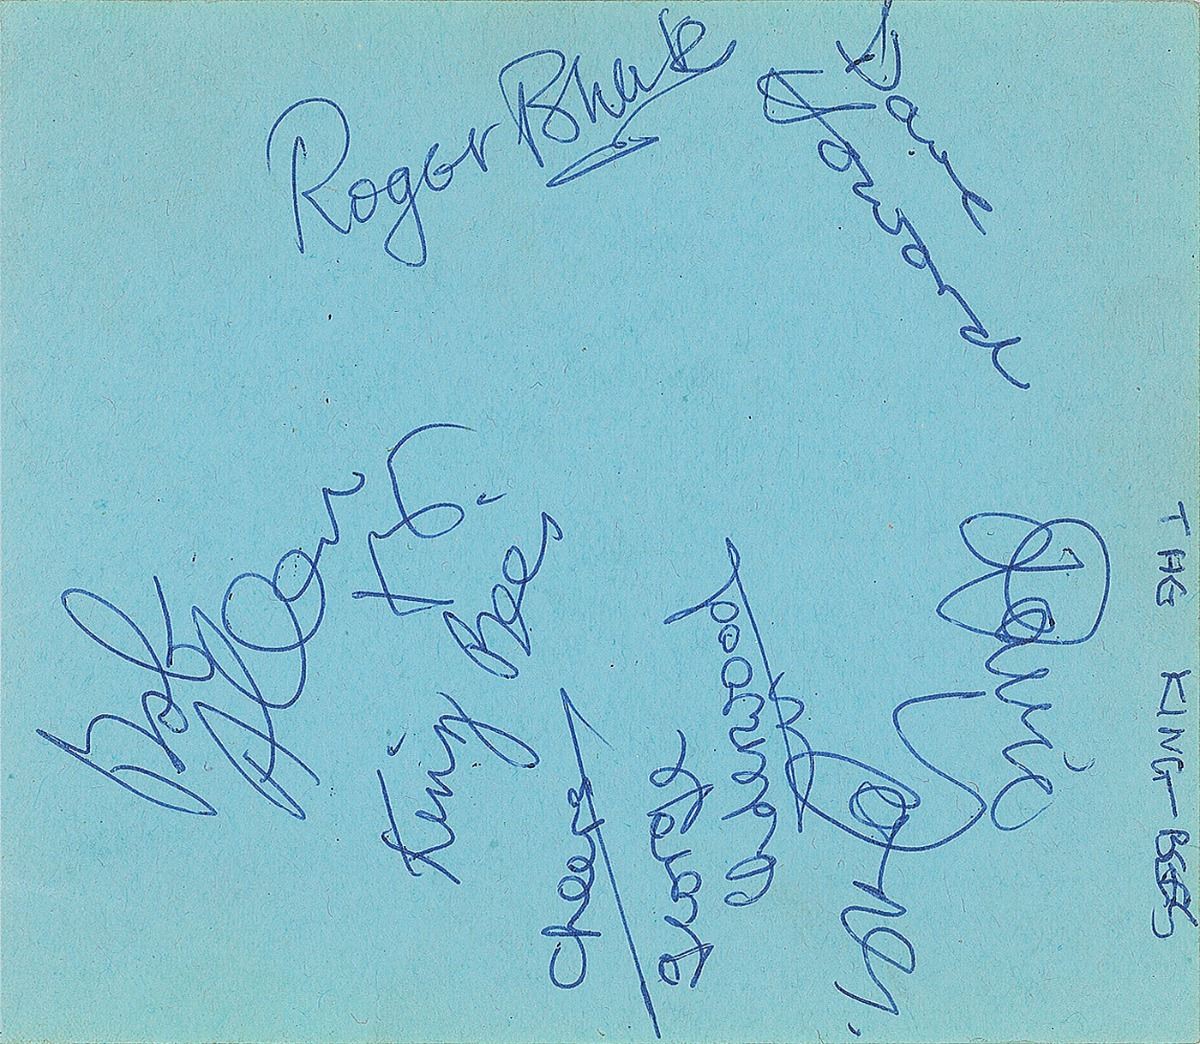 Roger
Dave
Howard
Bob
King Bees
Cheers
George
Underwood
Davie
Jones.
THE KING-BEES